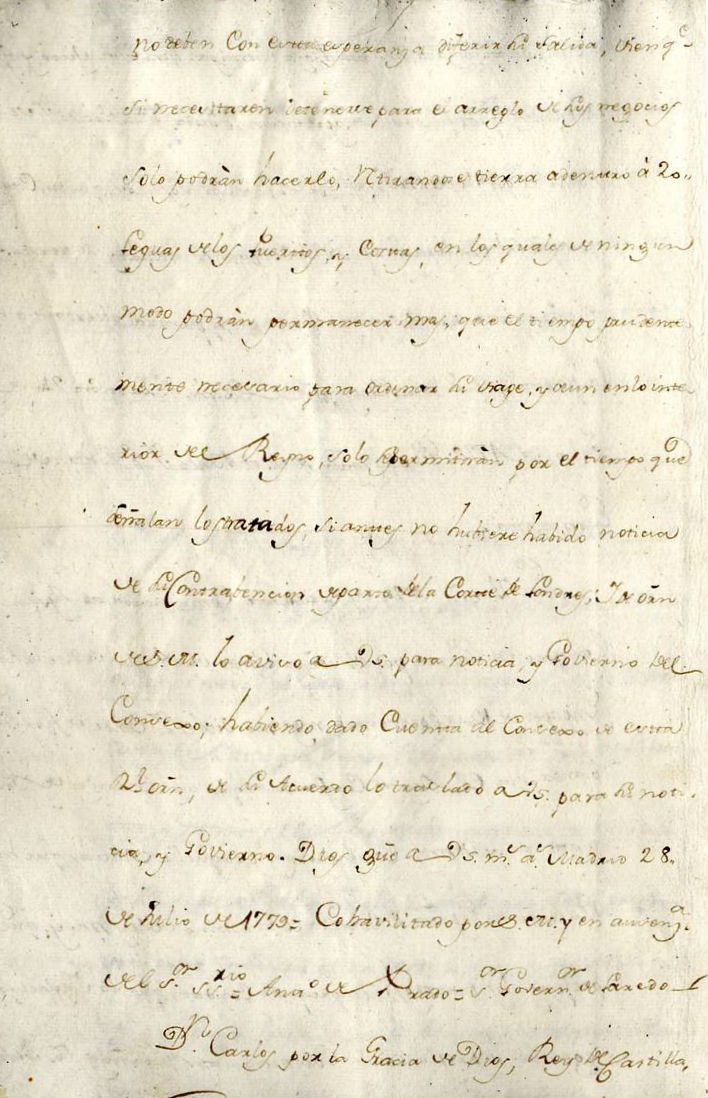 no deben con esta esperanza diferir su salida, vien q.e
si necesitaren detenerse para el arreglo de sus negocios
solo podràn hacerlo, retirandose tierra adentro à 20..
leguas de los Puertos, y Costas, en los quales de ningun
modo podràn permanecer mas, que el tiempo prudente
mente necesario para ordenar su viage, y aun en lo inte
rior del Reyno, solo se permitiràn por el tiempo que
señalan los tratados, si antes no hubiere habido noticia
de su Contrabencion de parte de la Corte de Londres; Y de orñ
de S. M. lo aviso a Vs. para noticia, y Govierno del
Consexo; habiendo dado Cuenta al Consexo de esta
Rl orñ, de su Acuerdo lo traslado a Vs. para su noti.
cia, y Govierno. Dios gũe a Vs. m.s a.s Madrid 28.
de Julio de 1779= Cohavilitado por S. M. y en ausenz.a
del S.or SS.rio = Ant.o de Prado= S.or Govern.or de Laredo
D.n Carlos por la Gracia de Dios, Rey de Castilla,